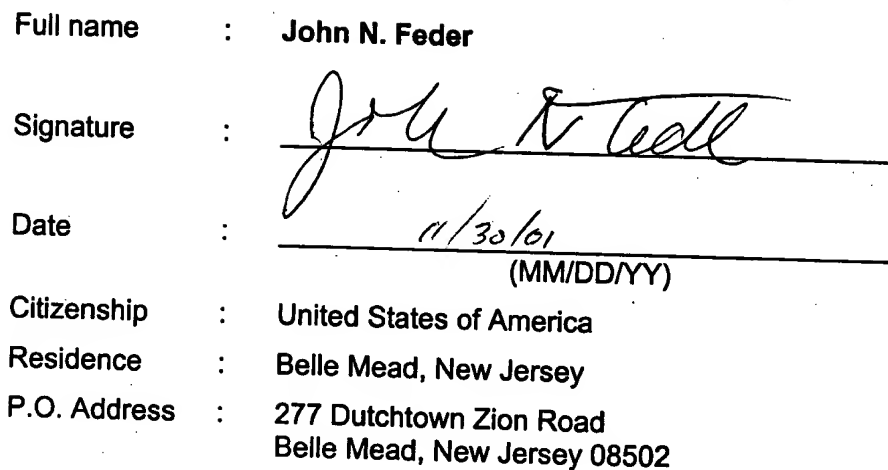 Full name : John N. Feder
Signature : John N Feder
Date : 11/30/01
(MM/DD/YY)
Citizenship : United States of America
Residence : Belle Mead, New Jersey
P.O. Address : 277 Dutchtown Zion Road
Belle Mead, New Jersey 08502